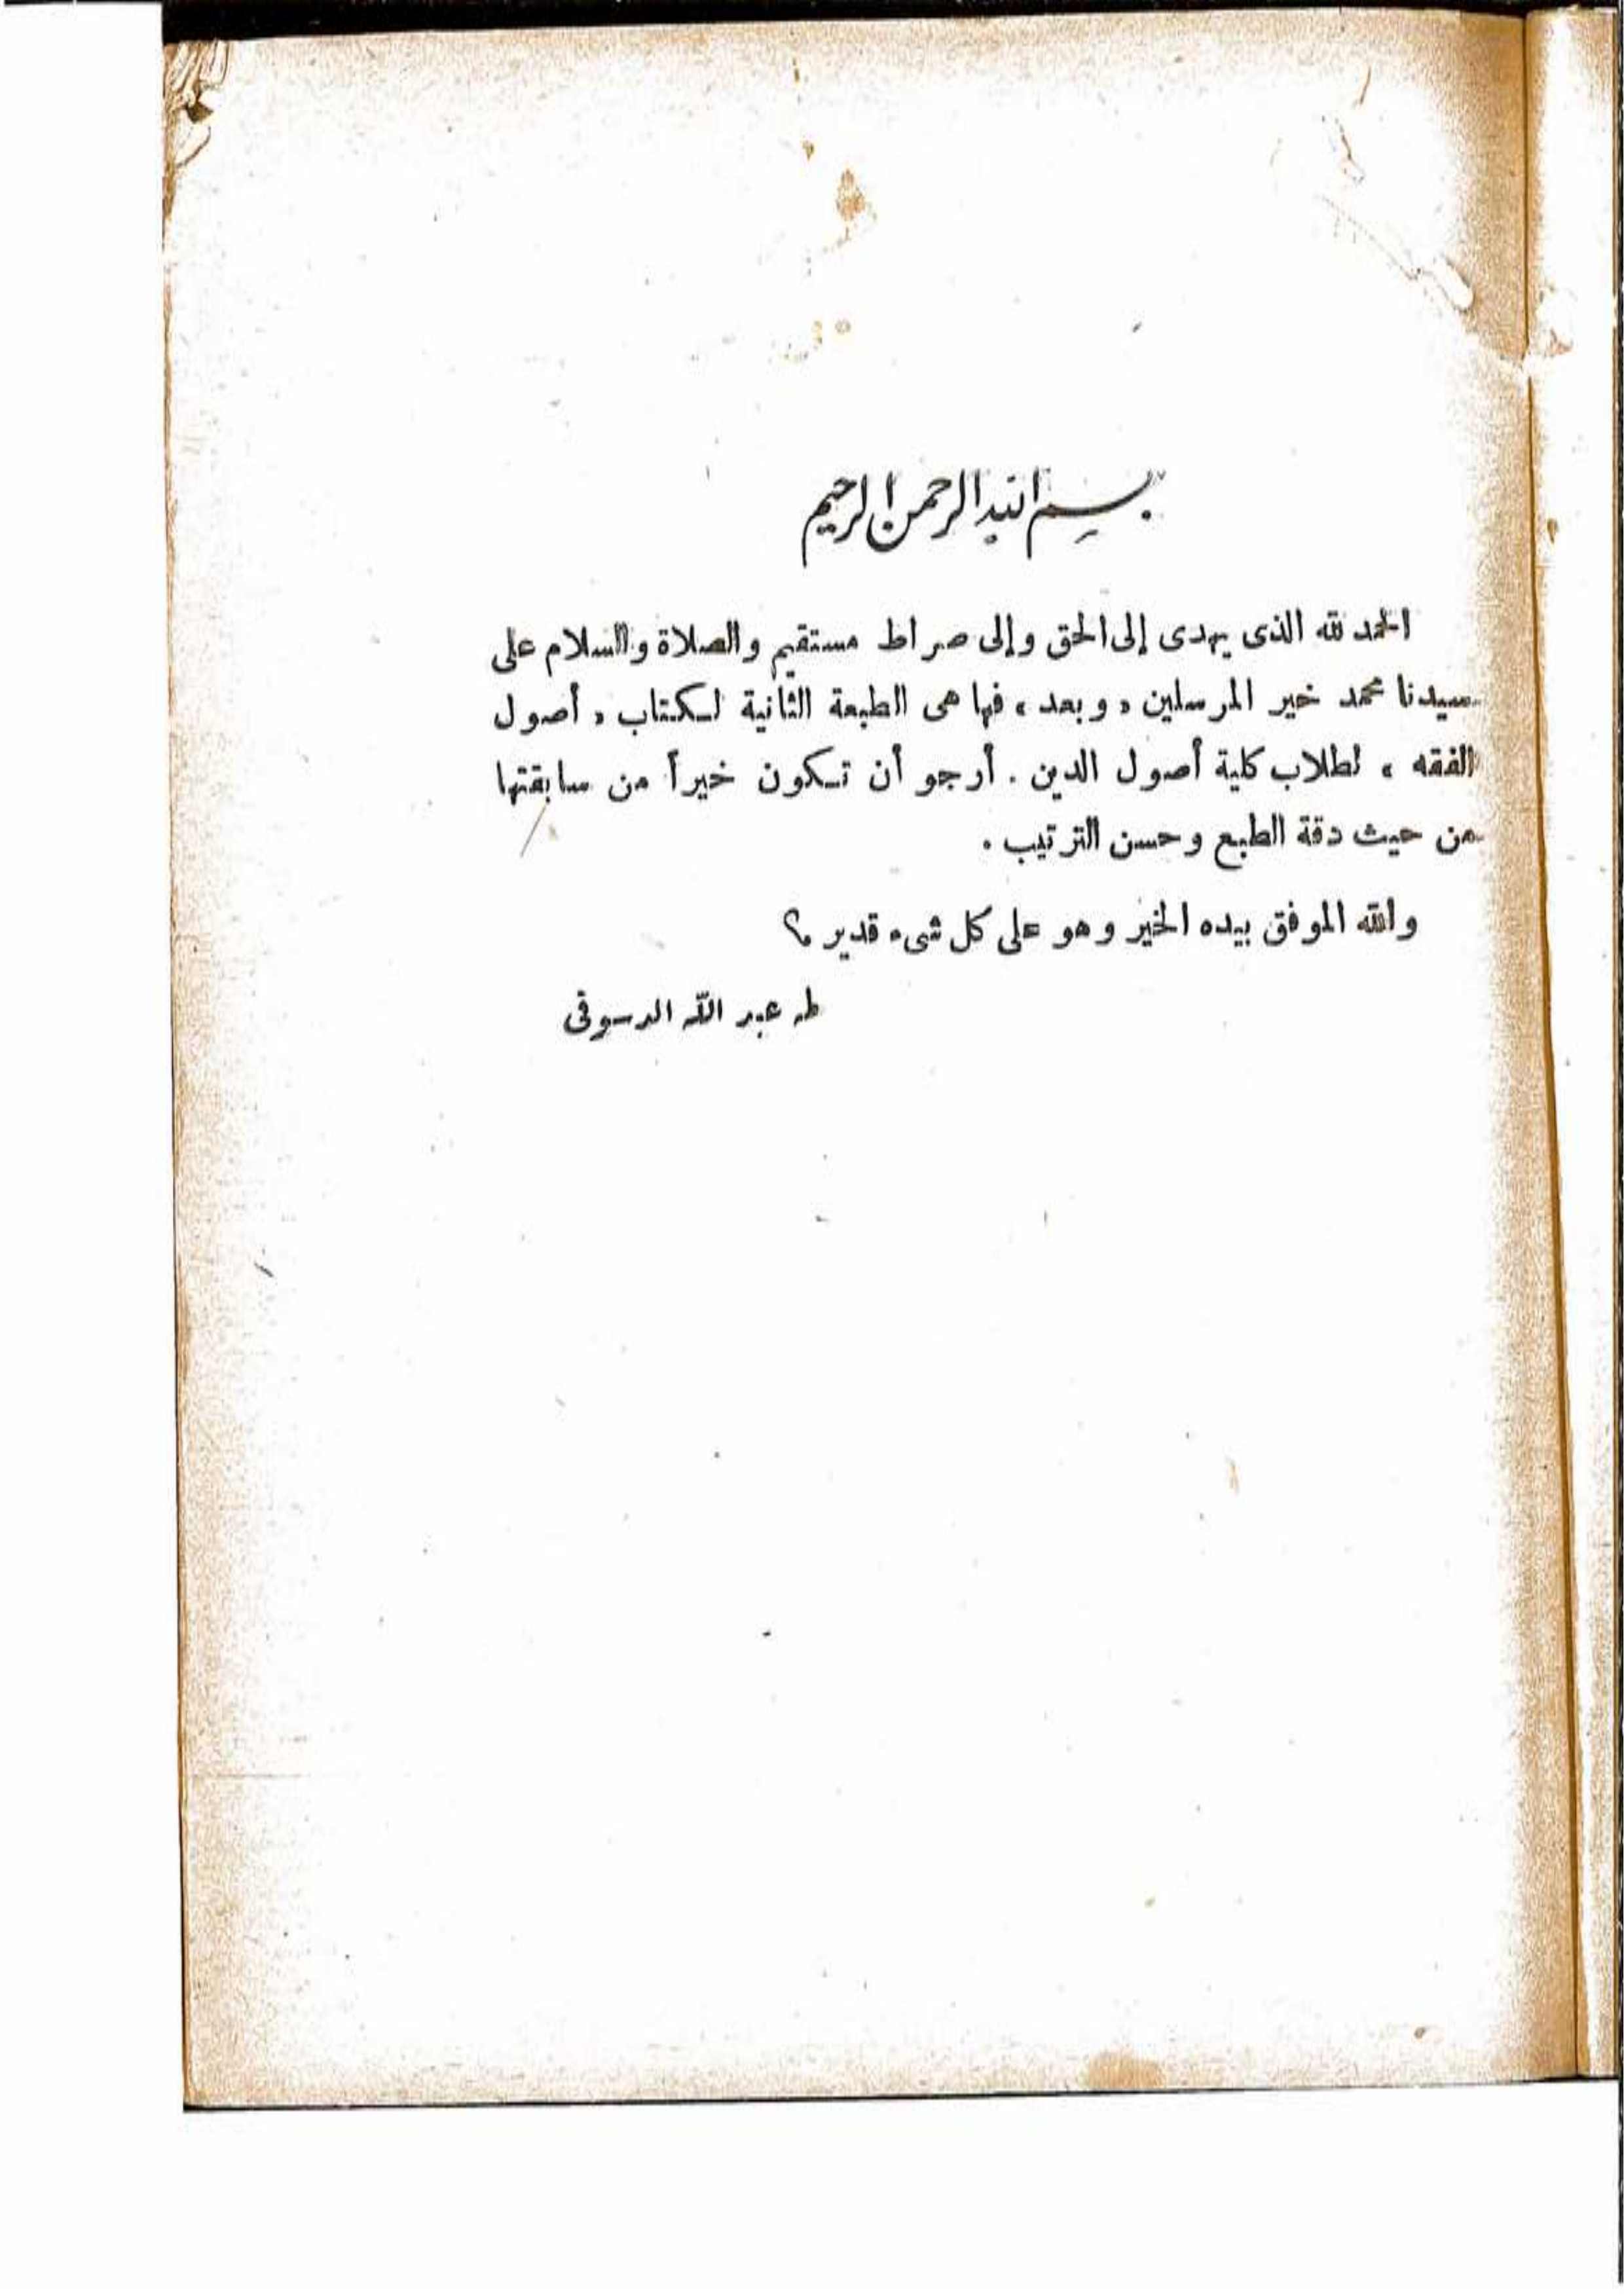 بسم الله الرحمن الرحيم
الحمد لله الذى يهدى إلى الحق وإلى صراط مستقيم والصلاة والسلام على
سيدنا محمد خير المرسلين « وبعد » فها هى الطبعة الثانية لكتاب « أصول
الفقه » لطلاب كلية أصول الدين . أرجو أن تكون خيراً من سابقتها
من حيث دقة الطبع وحسن الترتيب .
والله الموفق بيده الخير وهو على كل شىء قدير ؟
طه عبد الله الدسوقى